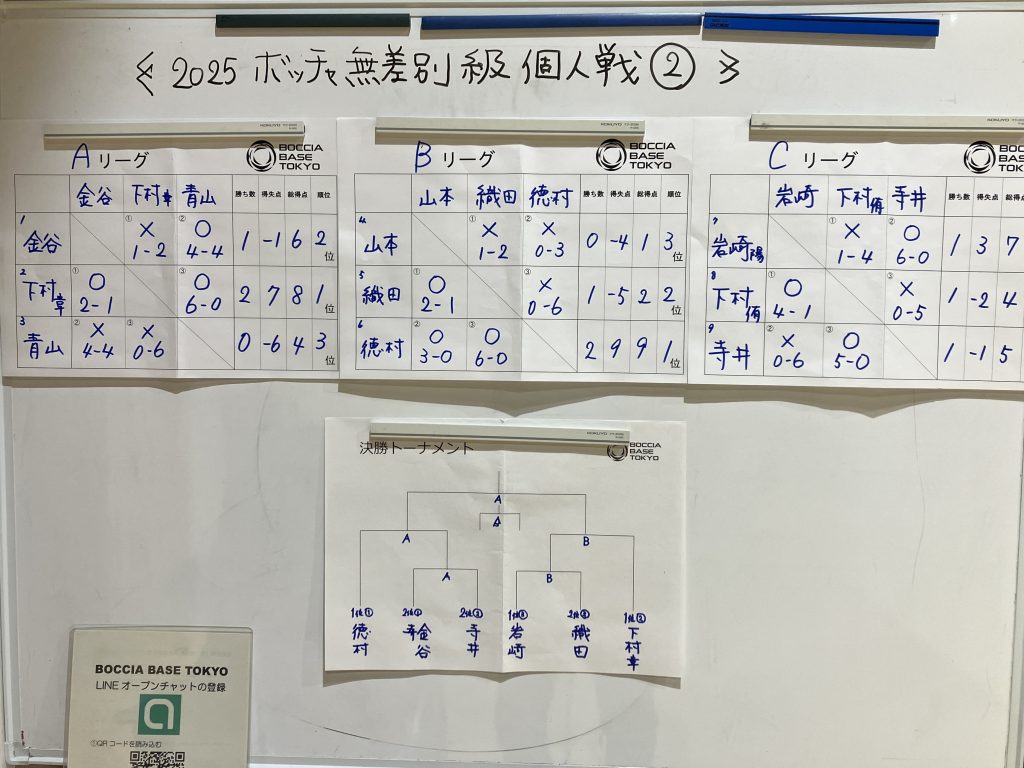 ≪ 2025 ボッチャ無差別級 個人戦② ≫
A リーグ
BOCCIA BASE TOKYO
金谷 下村幸 青山 勝ち数 得失点 総得点 順位
1 金谷 ① × 1-2 ② ○ 4-4 1 -1 6 2位
2 下村章 ① ○ 2-1 ③ ○ 6-0 2 7 8 1位
3 青山 ② × 4-4 ③ × 0-6 0 -6 4 3位
B リーグ
BOCCIA BASE TOKYO
山本 織田 徳村 勝ち数 得失点 総得点 順位
4 山本 ① × 1-2 ② × 0-3 0 -4 1 3位
5 織田 ① ○ 2-1 ③ × 0-6 1 -5 2 2位
6 徳村 ② ○ 3-0 ③ ○ 6-0 2 9 9 1位
C リーグ
BOCCIA BASE TOKYO
岩崎 下村侑 寺井 勝ち数 得失点 総得点
7 岩崎陽 ① × 1-4 ② ○ 6-0 1 3 7
8 下村侑 ① ○ 4-1 ③ × 0-5 1 -2 4
9 寺井 ② × 0-6 ③ ○ 5-0 1 -1 5
KOKUYO
KOKUYO
KOKUYO
決勝トーナメント
BOCCIA BASE TOKYO
A
A
A B
A B
1位① 2位 2位③ 1位 2位 1位②
徳村 金谷 寺井 岩崎 織田 下村章
BOCCIA BASE TOKYO
LINE オープンチャットの登録
①QRコードを読み込む